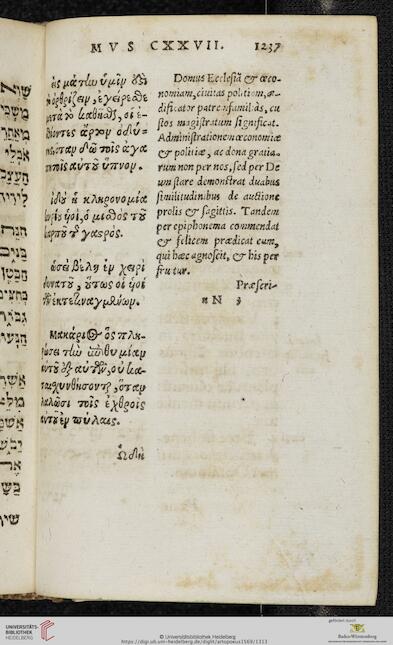 MVS CXXVII. 1237
εἰς μάτην ὑμῖν ἐστὶ
ὀρθρίζειν, ἐγείρεσθε
μετὰ τὸ καθῆσθαι, οἱ ἐ-
σθίοντες ἄρτον ὀδύ-
νης, ὅταν δῷ τοῖς ἀγα
πητοῖς αὐτοῦ ὕπνον.
ἰδοὺ ἡ κληρονομία
κυρίου ὑοὶ, ὁ μισθὸς τοῦ
καρποῦ τῆς γαστρός.
ὡσεὶ βέλη ἐν χειρὶ
δυνατοῦ, οὕτως οἱ ὑοὶ
τῶν ἐκτετιναγμένων.
Μακάριος ὃς πλη-
ρώσει τὴν ἐπιθυμίαν
αὐτοῦ ἐξ αὐτῶν, οὐ κα-
ταισχυνθήσονται, ὅταν
λαλῶσι τοῖς ἐχθροῖς
αὐτῶν ἐν πύλαις.
Ὠδὴ
Domus Ecclesiā & œco-
nomiam, ciuitas politiam, æ-
dificator patremfamiliâs, cu
stos magistratum significat.
Administrationem œconomiæ
& politiæ, ac dona gratia-
rum non per nos, sed per De
um stare demonstrat duabus
similitudinibus de auctione
prolis & sagittis. Tandem
per epiphonema commendat
& felicem prædicat eum,
qui hæc agnoscit, & his per
fruitur.
Præscri-
nN 3
UNIVERSITÄTS-
BIBLIOTHEK
HEIDELBERG
© Universitätsbibliothek Heidelberg
https://digi.ub.uni-heidelberg.de/diglit/artopoeus1569/1313
gefördert durch
Baden-Württemberg